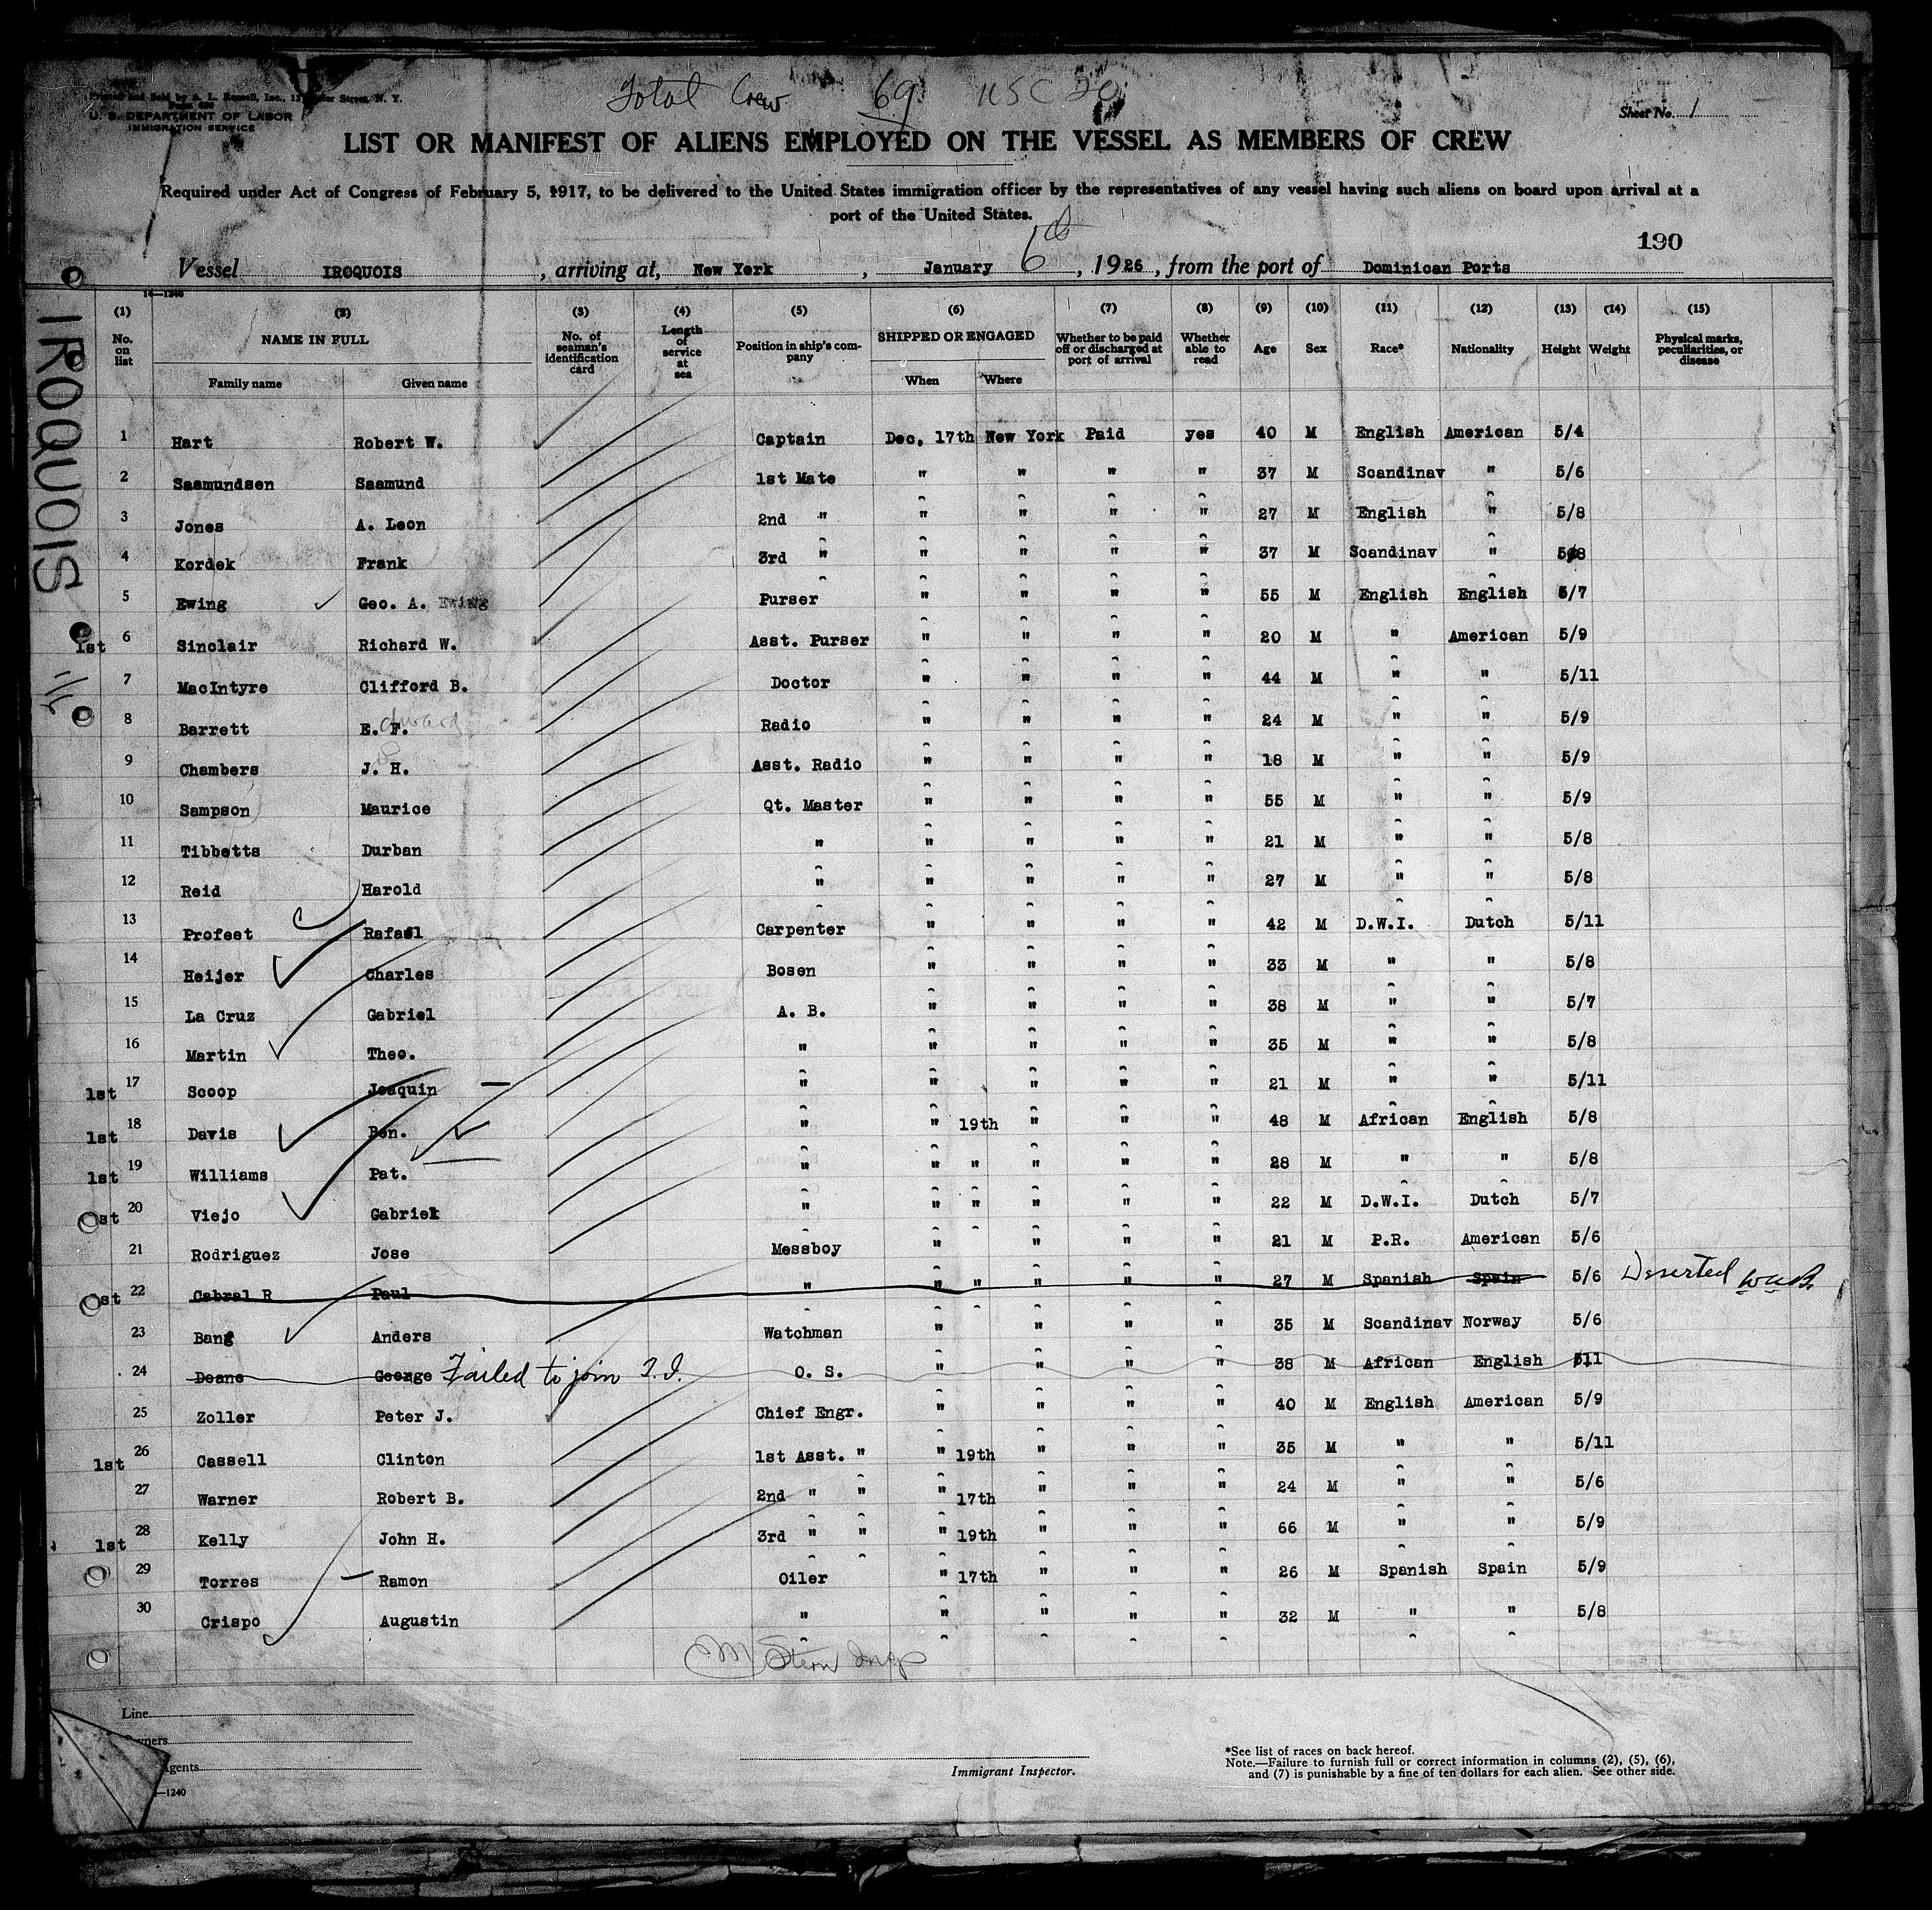 Total Crew 69 USC
Printed and Sold by A. L. Russell, Inc., Street, N. Y.
U. S. DEPARTMENT OF LABOR
IMMIGRATION SERVICE
Sheet No. 1
LIST OR MANIFEST OF ALIENS EMPLOYED ON THE VESSEL AS MEMBERS OF CREW
Required under Act of Congress of February 5, 1917, to be delivered to the United States immigration officer by the representatives of any vessel having such aliens on board upon arrival at a
port of the United States.
190
Vessel IROQUOIS, arriving at, New York, January 6th, 1926, from the port of Dominican Ports
IROQUOIS
14—1240
(1) (2) (3) (4) (5) (6) (7) (8) (9) (10) (11) (12) (13) (14) (15)
No. on list NAME IN FULL No. of seaman's identification card Length of service at sea Position in ship's company SHIPPED OR ENGAGED Whether to be paid off or discharged at port of arrival Whether able to read Age Sex Race* Nationality Height Weight Physical marks, peculiarities, or disease
Family name Given name When Where
1 Hart Robert W. Captain Dec. 17th New York Paid yes 40 M English American 5/4
2 Saamundsen Saamund 1st Mate " " " " 37 M Scandinav " 5/6
3 Jones A. Leon 2nd " " " " " 27 M English " 5/8
4 Kordek Frank 3rd " " " " " 37 M Scandinav " 5/8
5 Ewing Geo. A. Ewing Purser " " " " 55 M English English 5/7
1st 6 Sinclair Richard W. Asst. Purser " " " " 20 M " American 5/9
7 MacIntyre Clifford B. Doctor " " " " 44 M " " 5/11
8 Barrett E. F. dward Radio " " " " 24 M " " 5/9
9 Chambers J. H. Asst. Radio " " " " 18 M " " 5/9
10 Sampson Maurice Qt. Master " " " " 55 M " " 5/9
11 Tibbetts Durban " " " " " 21 M " " 5/8
12 Reid Harold " " " " " 27 M " " 5/8
13 Profeet Rafael Carpenter " " " " 42 M D.W.I. Dutch 5/11
14 Heijer Charles Bosen " " " " 33 M " " 5/8
15 La Cruz Gabriel A. B. " " " " 38 M " " 5/7
16 Martin Theo. " " " " " 35 M " " 5/8
1st 17 Scoop Joaquin " " " " " 21 M " " 5/11
1st 18 Davis Ben. " " 19th " " " 48 M African English 5/8
1st 19 Williams Pat. " " " " " " 28 M " " 5/8
st 20 Viejo Gabriek " " " " " " 22 M D.W.I. Dutch 5/7
21 Rodriguez Jose Messboy " " " " 21 M P.R. American 5/6
st 22 Cabral R Paul " " " " " " 27 M Spanish Spain 5/6 Deserted
23 Bang Anders Watchman " " " " 35 M Scandinav Norway 5/6
24 Deane George Failed to join O. S. " " " " 38 M African English 511
25 Zoller Peter J. Chief Engr. " " " " 40 M English American 5/9
1st 26 Cassell Clinton 1st Asst. " " 19th " " " 35 M " " 5/11
27 Warner Robert B. 2nd " " " 17th " " " 24 M " " 5/6
1st 28 Kelly John H. 3rd " " " 19th " " " 66 M " " 5/9
29 Torres Ramon Oiler " 17th " " " 26 M Spanish Spain 5/9
30 Crispo Augustin " " " " " 32 M " " 5/8
M Stern Insp
Line
Owners
Agents
—1240
Immigrant Inspector.
*See list of races on back hereof.
Note.—Failure to furnish full or correct information in columns (2), (5), (6),
and (7) is punishable by a fine of ten dollars for each alien. See other side.